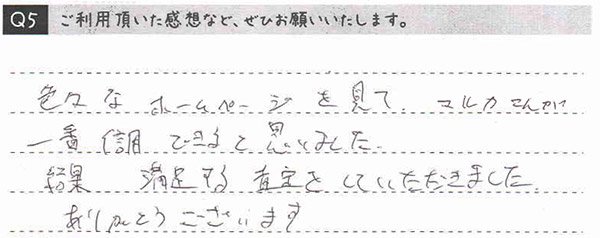 Q5 ご利用頂いた感想など、ぜひお願いいたします。
色々な ホームページを見て、マルカさんが
一番 信用 できると思いました。
結果 満足する 査定をしていただきました。
ありがとうございます